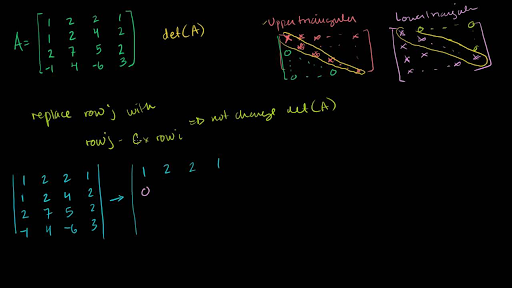 A = [ 1 2 2 1
1 2 4 2
2 7 5 2
-1 4 -6 3 ]
det(A)
Upper triangular
x x x . . x
0 x
0 . . 0 x
Lower triangular
replace row j with
row j - C × row i
=> not change det(A)
| 1 2 2 1
1 2 4 2
2 7 5 2
-1 4 -6 3 |
→ | 1 2 2 1
0